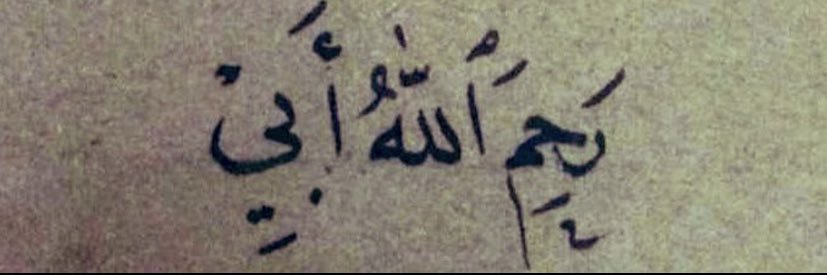 رَحِمَ ٱللَّٰهُ أَبِيْ